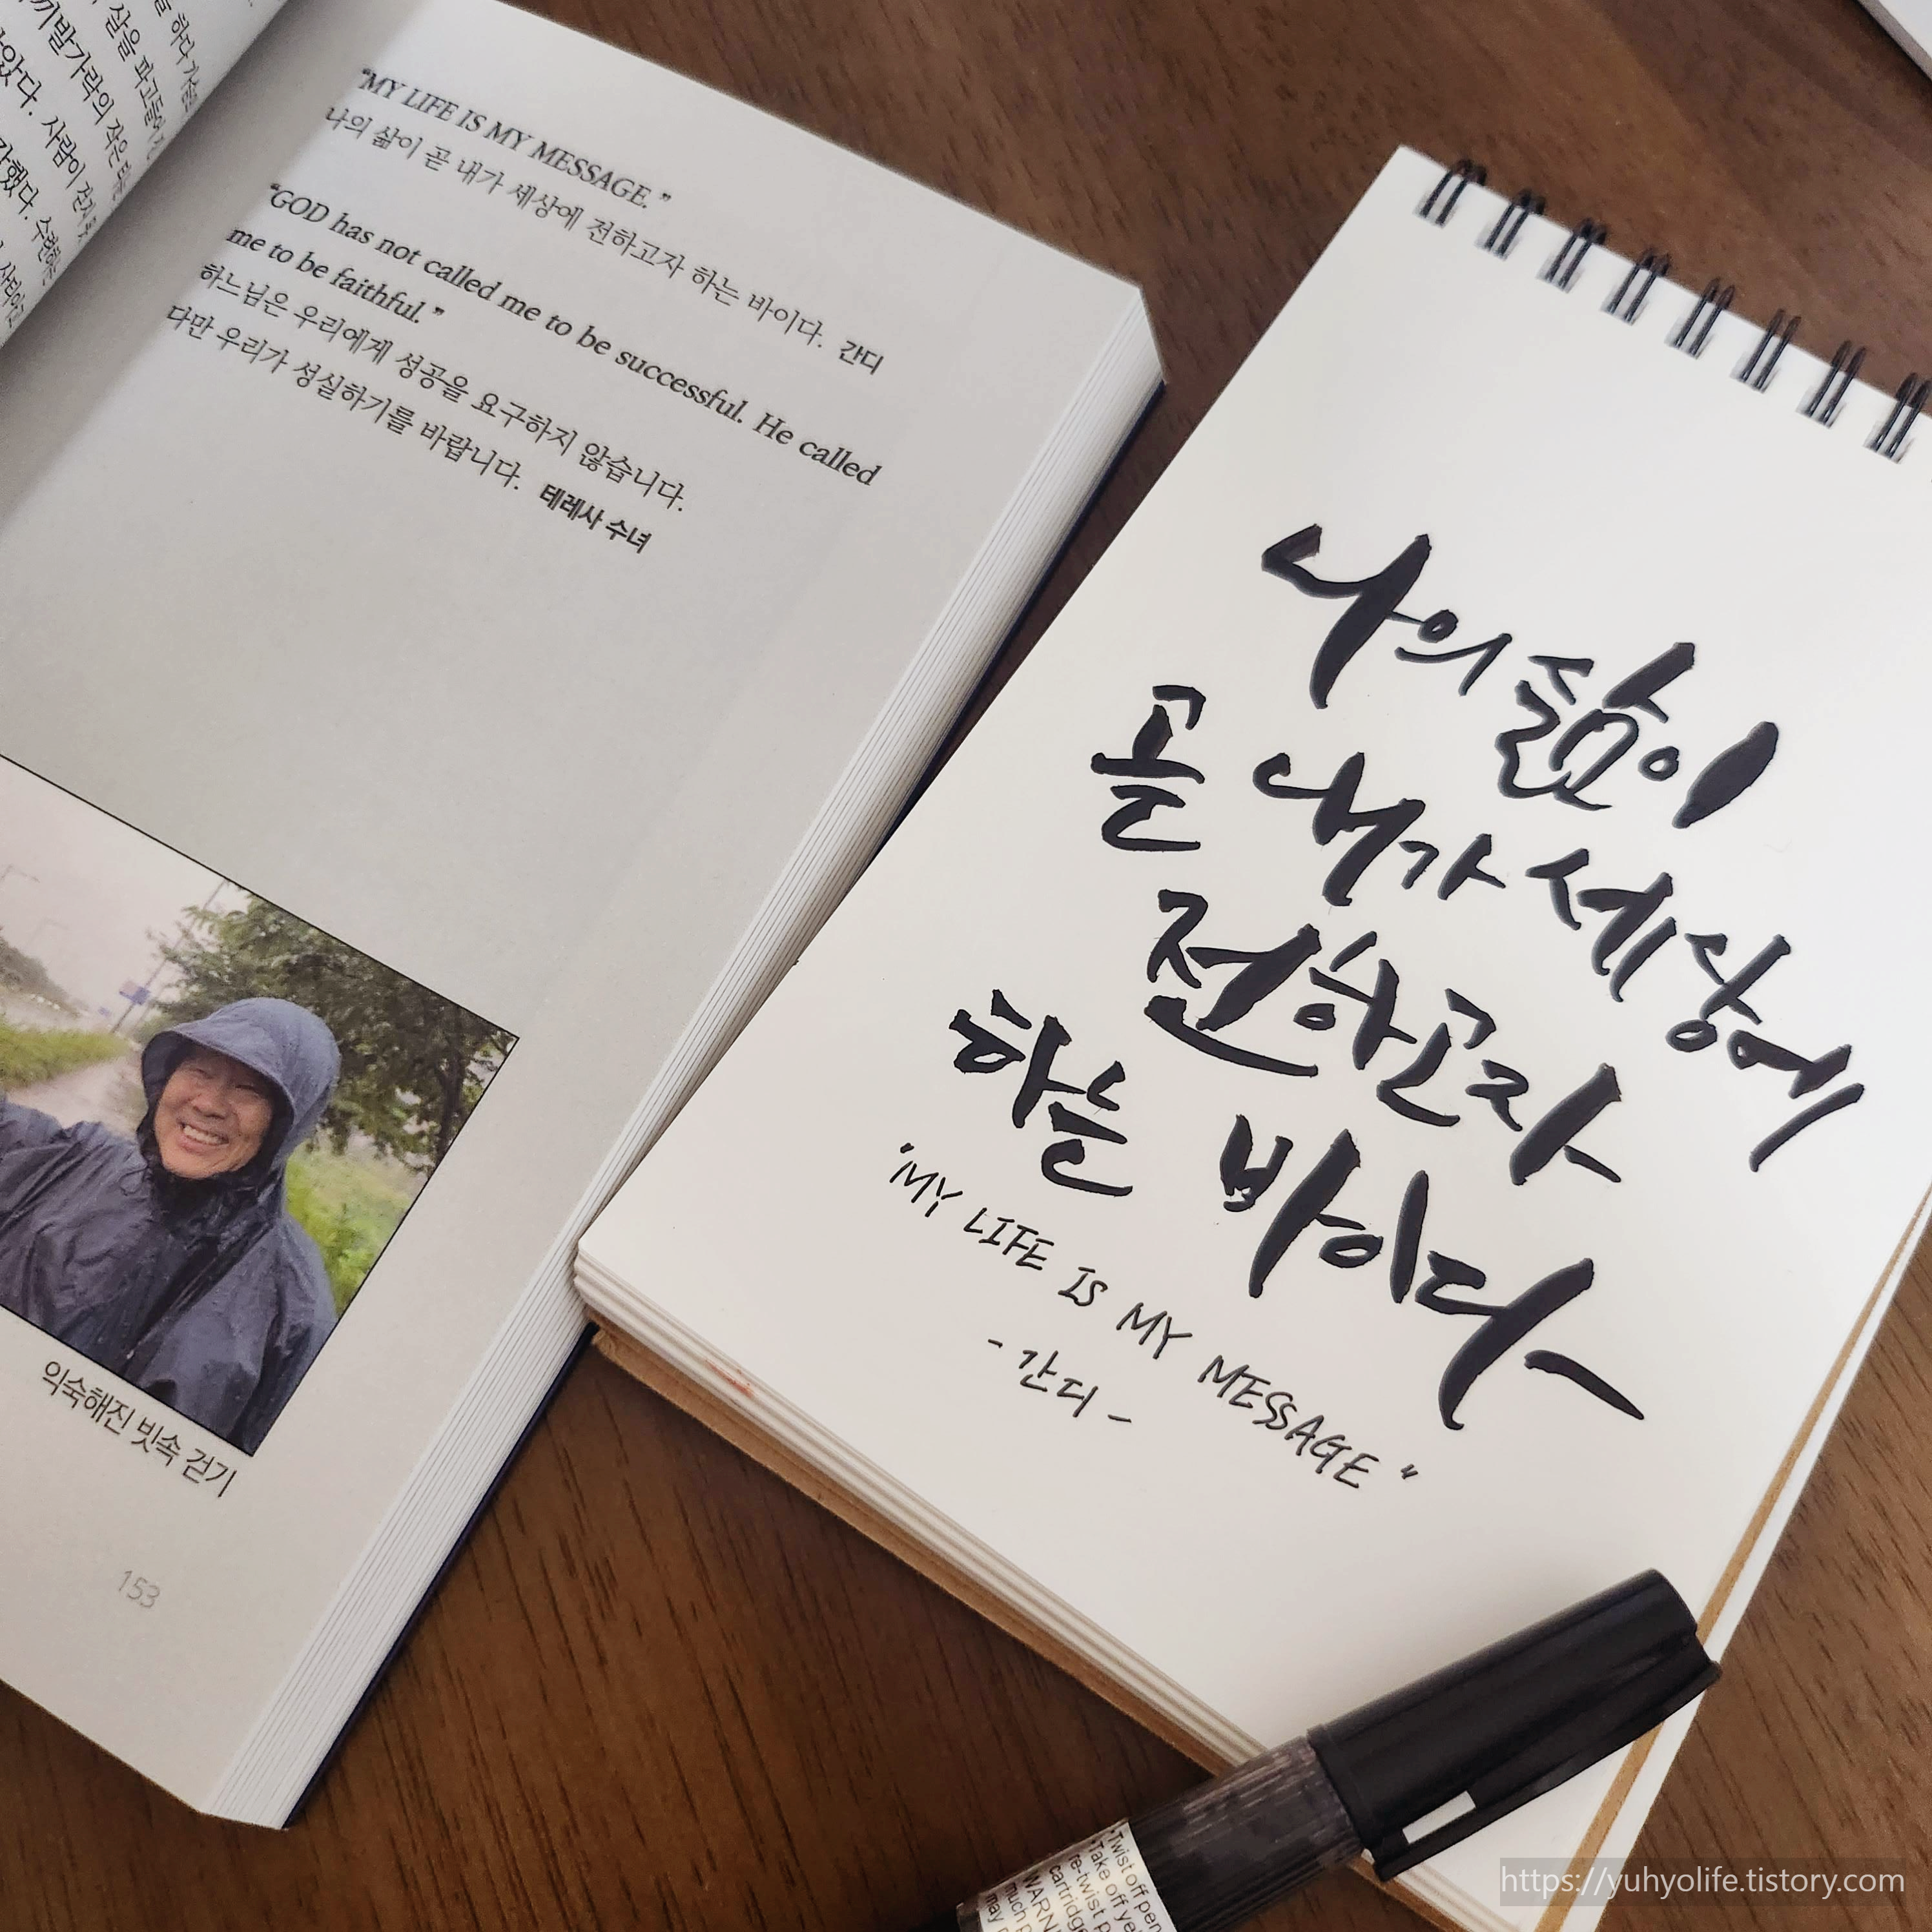 하다
삶을 파고들어
끼발가락의 작은
았다. 사람이
각했다. 수련하는
"MY LIFE IS MY MESSAGE."
나의 삶이 곧 내가 세상에 전하고자 하는 바이다. 간디
"GOD has not called me to be successful. He called
me to be faithful."
하느님은 우리에게 성공을 요구하지 않습니다.
다만 우리가 성실하기를 바랍니다. 테레사 수녀
익숙해진 빗속 걷기
153
나의 삶이
곧 내가 세상에
전하고자
하는 바이다
"MY LIFE IS MY MESSAGE"
- 간디 -
Twist off pen
Take off
re-twist
cartridge
WARN
much
may
https://yuhyolife.tistory.com